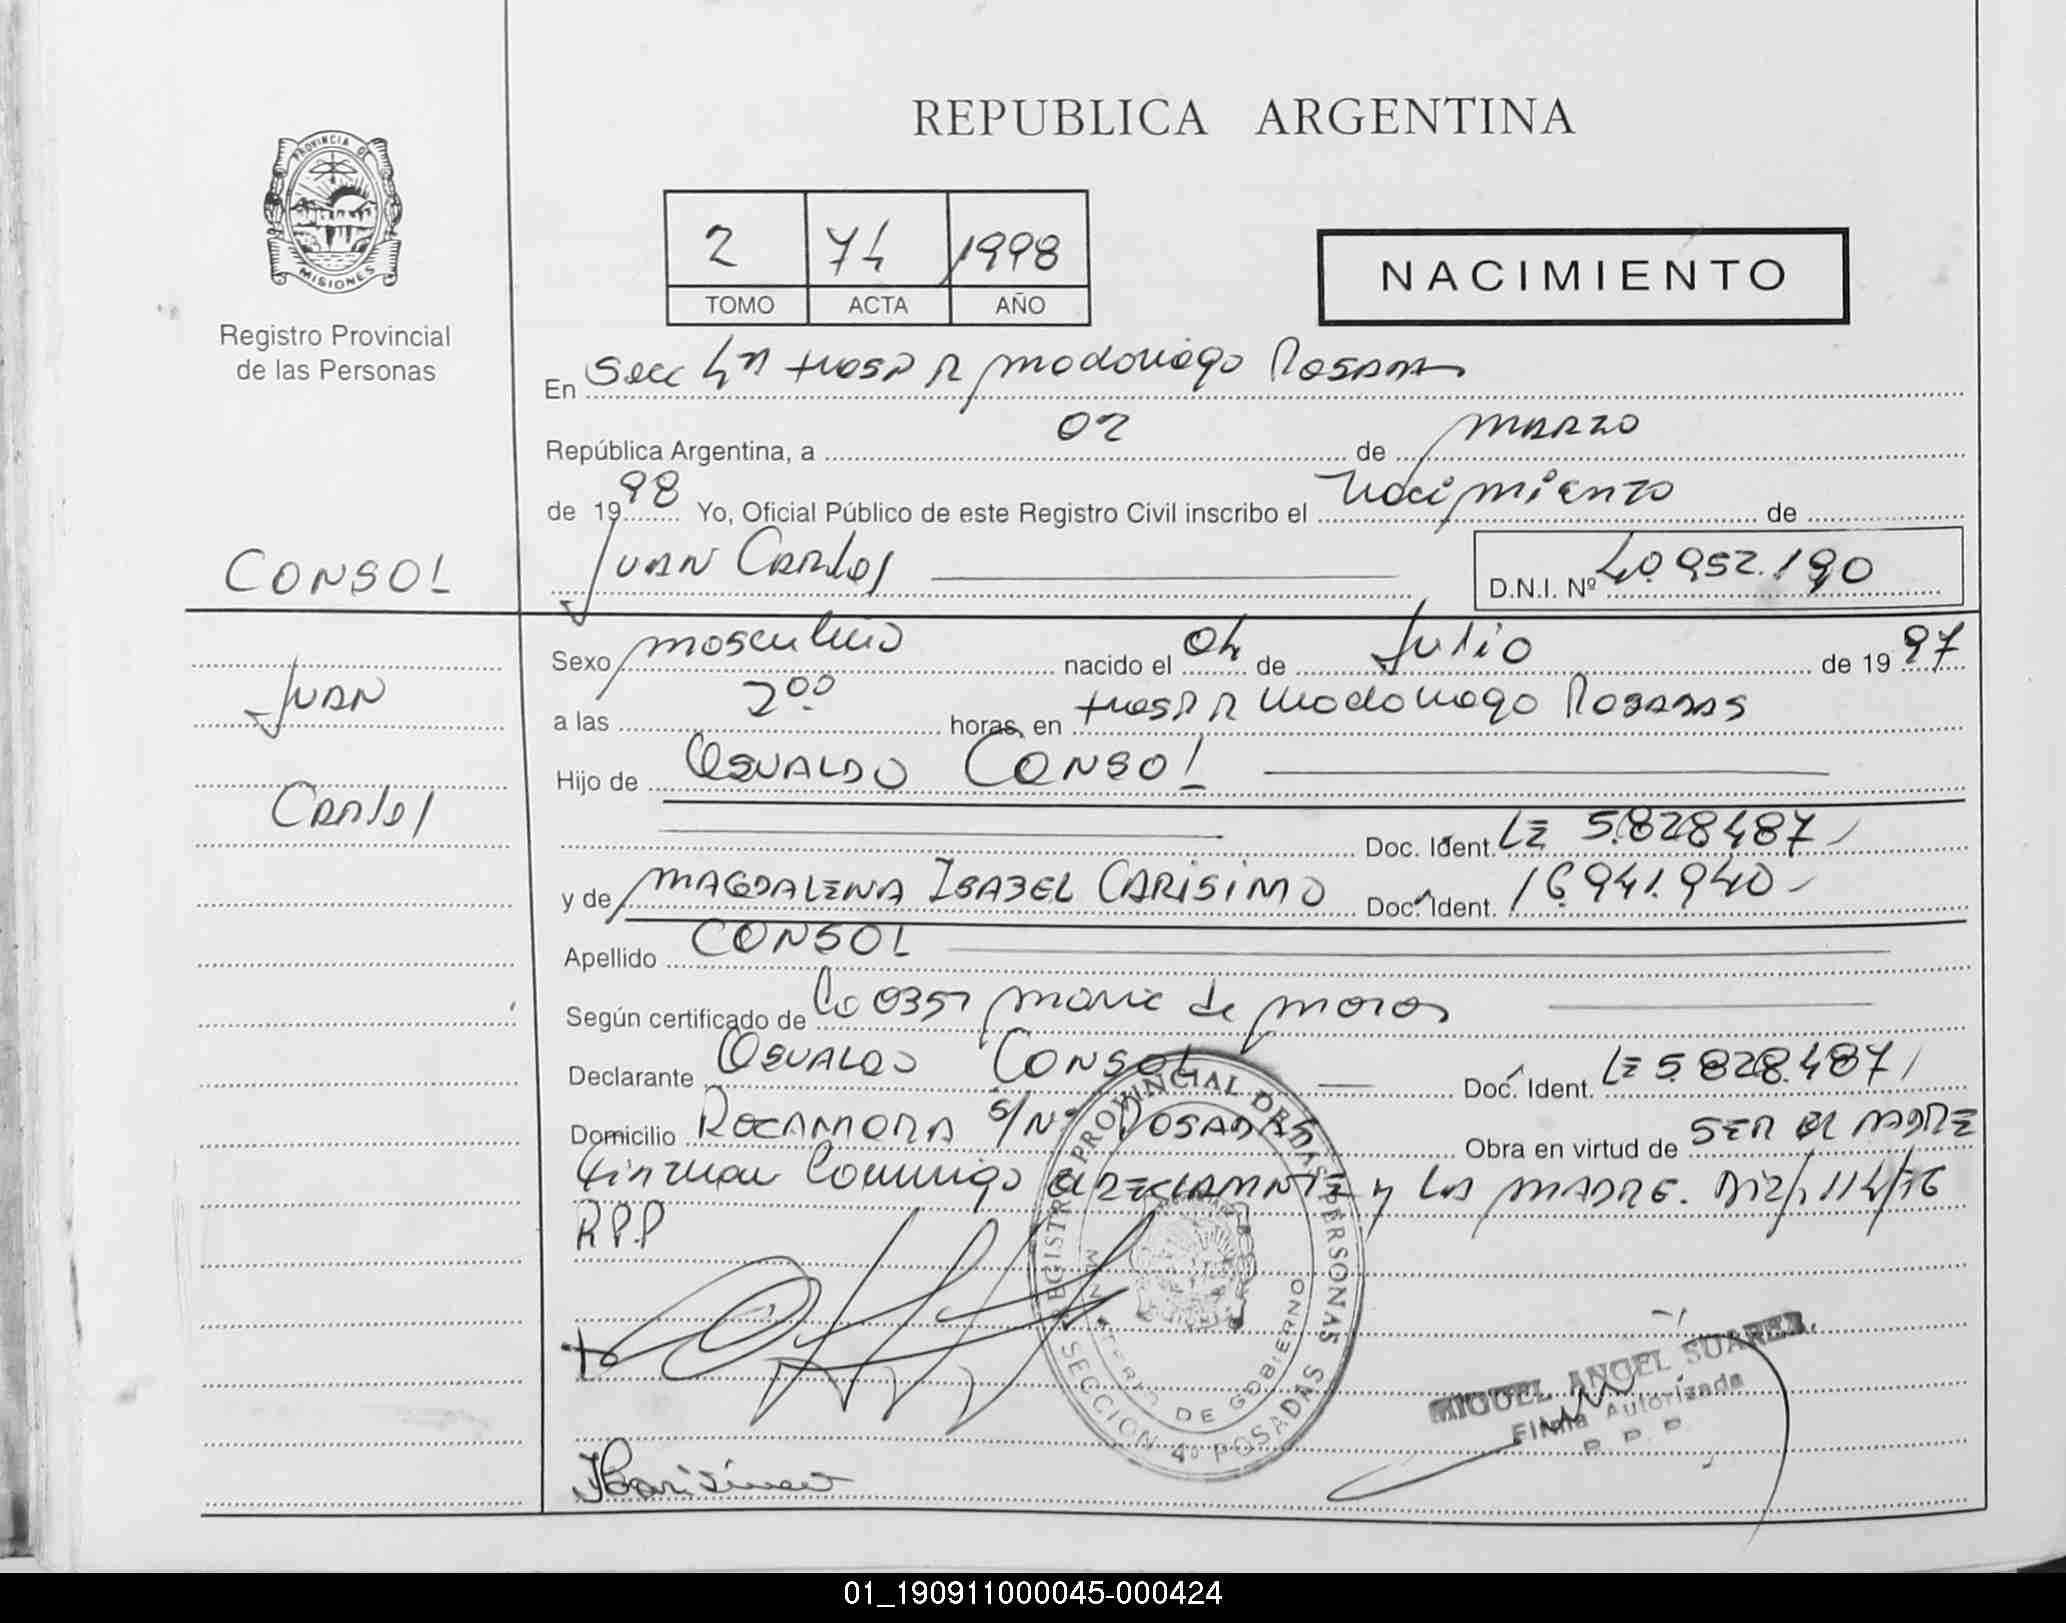 REPUBLICA ARGENTINA
PROVINCIA DE MISIONES
Registro Provincial
de las Personas
2 74 1998
TOMO ACTA AÑO
NACIMIENTO
En Secc 4ta Hosp R Madariaga Posadas
República Argentina, a 02 de marzo
de 1998 Yo, Oficial Público de este Registro Civil inscribo el Nacimiento de
Juan Carlos D.N.I. Nº 40.952.190
CONSOL
Juan
Carlos
Sexo masculino nacido el 04 de Julio de 1997
a las 2:00 horas, en Hosp R Madariaga Posadas
Hijo de Osvaldo Consol
Doc. Ident. LE 5.828487
y de MAGDALENA ISABEL CARISIMO Doc. Ident. 16.941.940
Apellido CONSOL
Según certificado de
Declarante Osvaldo Consol Doc. Ident. LE 5.828.487
Domicilio ROCAMORA S/Nº POSADAS Obra en virtud de SER EL PADRE
Firman Conmigo el DECLARANTE y LA MADRE.
R.P.P
REGISTRO PROVINCIAL DE LAS PERSONAS
MINISTERIO DE GOBIERNO
SECCION 4º POSADAS
MIGUEL ANGEL SUAREZ
Firma Autorizada
R. P. P.
01_190911000045-000424